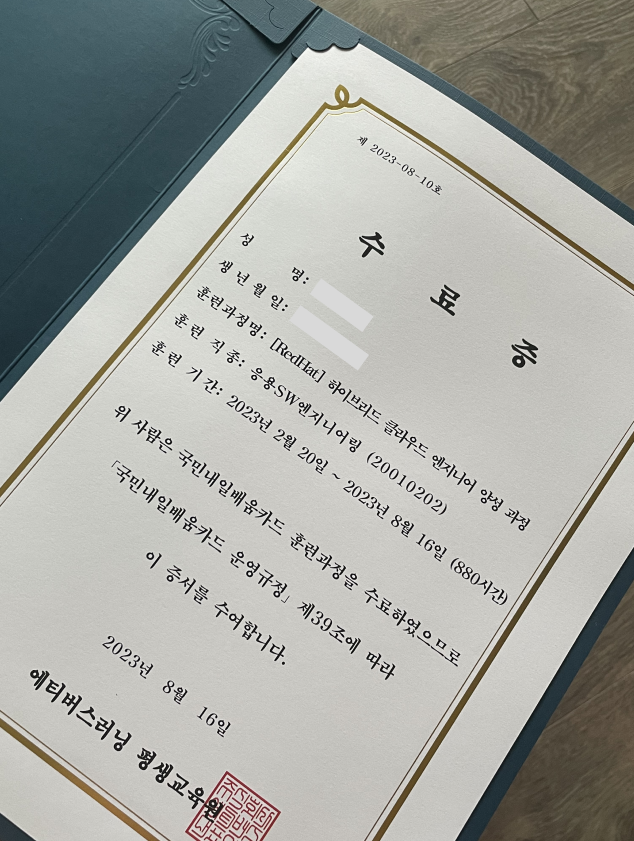 제 2023-08-10호
수 료 증
성 명:
생 년 월 일:
훈련과정명: [RedHat] 하이브리드 클라우드 엔지니어 양성 과정
훈 련 직 종: 응용SW엔지니어링 (20010202)
훈 련 기 간: 2023년 2월 20일 ~ 2023년 8월 16일 (880시간)
위 사람은 국민내일배움카드 훈련과정을 수료하였으므로
「국민내일배움카드 운영규정」 제39조에 따라
이 증서를 수여합니다.
2023년 8월 16일
에티버스러닝 평생교육원